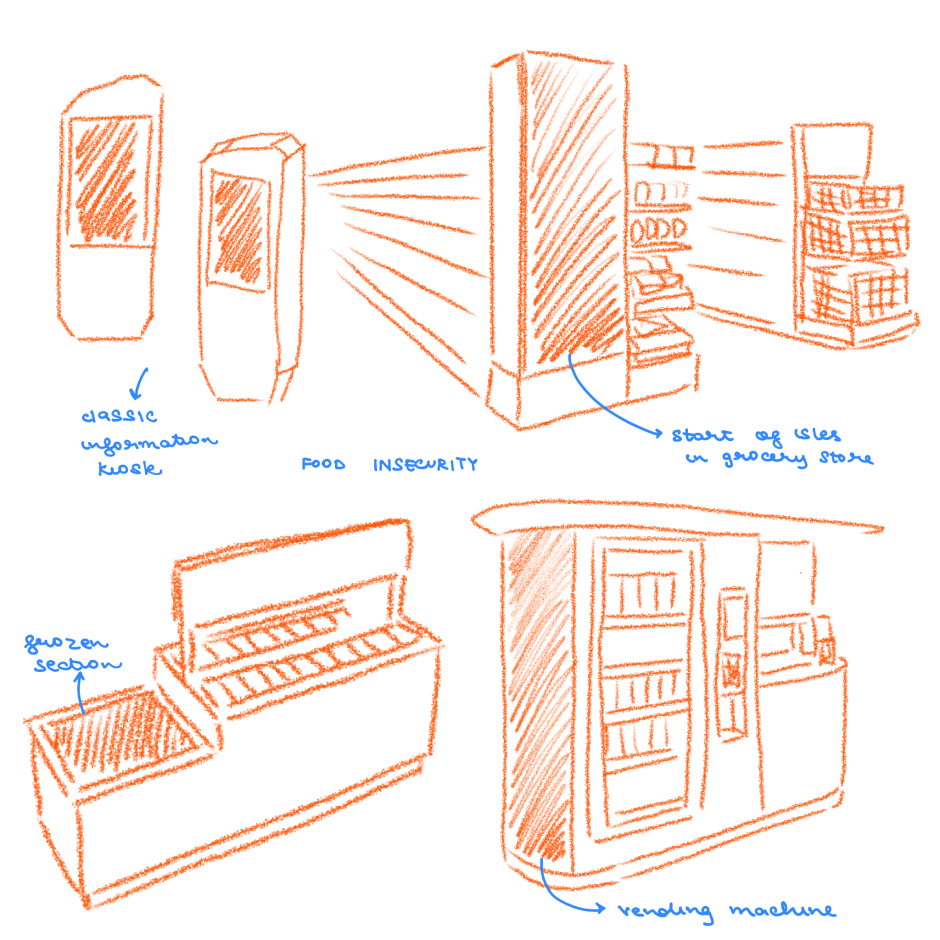 classic
information
kiosk
FOOD INSECURITY
start of isles
in grocery store
frozen
section
vending machine